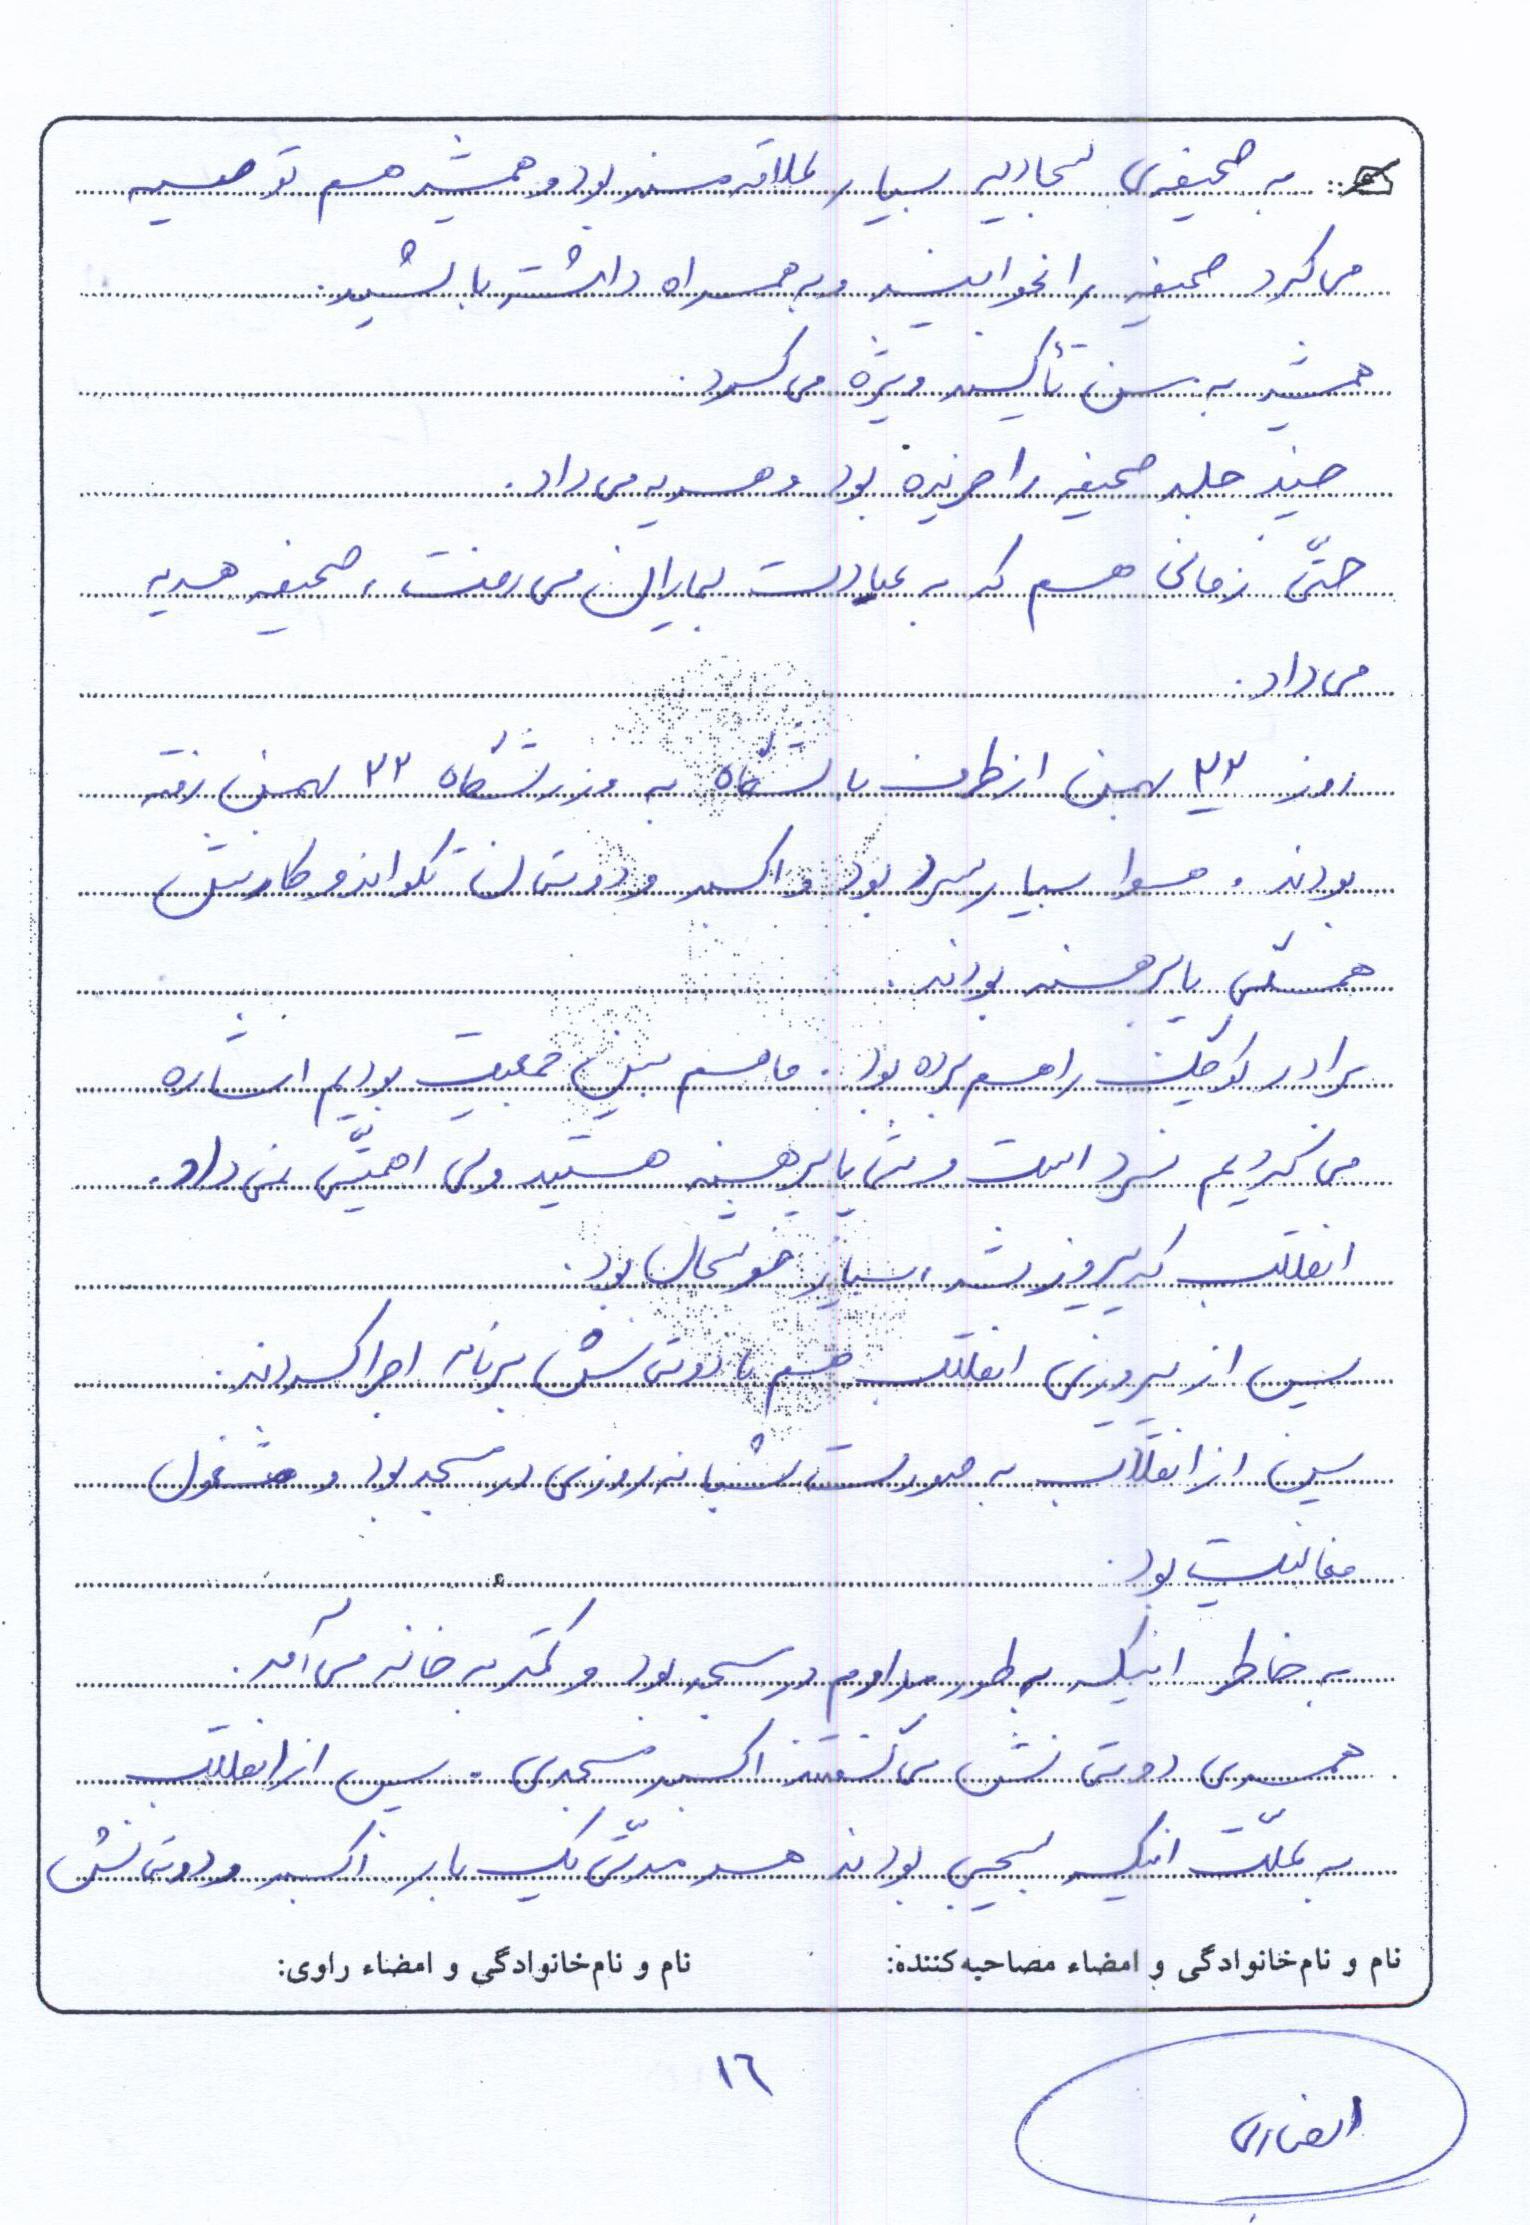 به صحیفه‌ی سجادیه بسیار علاقه‌مند بود و همیشه هم توصیه
می‌کرد صحیفه را بخوانید و به همراه داشته باشید.
همیشه به من تأکید ویژه می‌کرد.
چند جلد صحیفه را خریده بود و هدیه می‌داد.
حتّی زمانی هم که به عیادت بیماران می‌رفت، صحیفه هدیه
می‌داد.
روز ۲۲ بهمن از طرف باشگاه به ورزشگاه ۲۲ بهمن رفته
بودند. هوا بسیار سرد بود و اکبر و دوستان تکواندو کارش
همگی پابرهنه بودند.
برادر کوچکش را هم برده بود. ما هم بین جمعیت بودیم اشاره
می‌کردیم سرد است و شما پابرهنه هستید ولی اهمیّتی نمی‌داد.
انقلاب که پیروز شد، بسیار خوشحال بود.
پس از پیروزی انقلاب هم با دوستانش برنامه اجرا کردند.
پس از انقلاب به صورت شبانه‌روزی در مسجد بود و مشغول
فعالیت بود.
به خاطر اینکه به طور مداوم در مسجد بود و کمتر به خانه می‌آمد.
همه‌ی دوستانش می‌گفتند اکبر مسجدی. پس از انقلاب
به علّت اینکه بسیجی بودند هر مدتی یک بار اکبر و دوستانش
نام و نام‌خانوادگی و امضاء مصاحبه‌کننده: نام و نام‌خانوادگی و امضاء راوی:
۱۶
انصاری